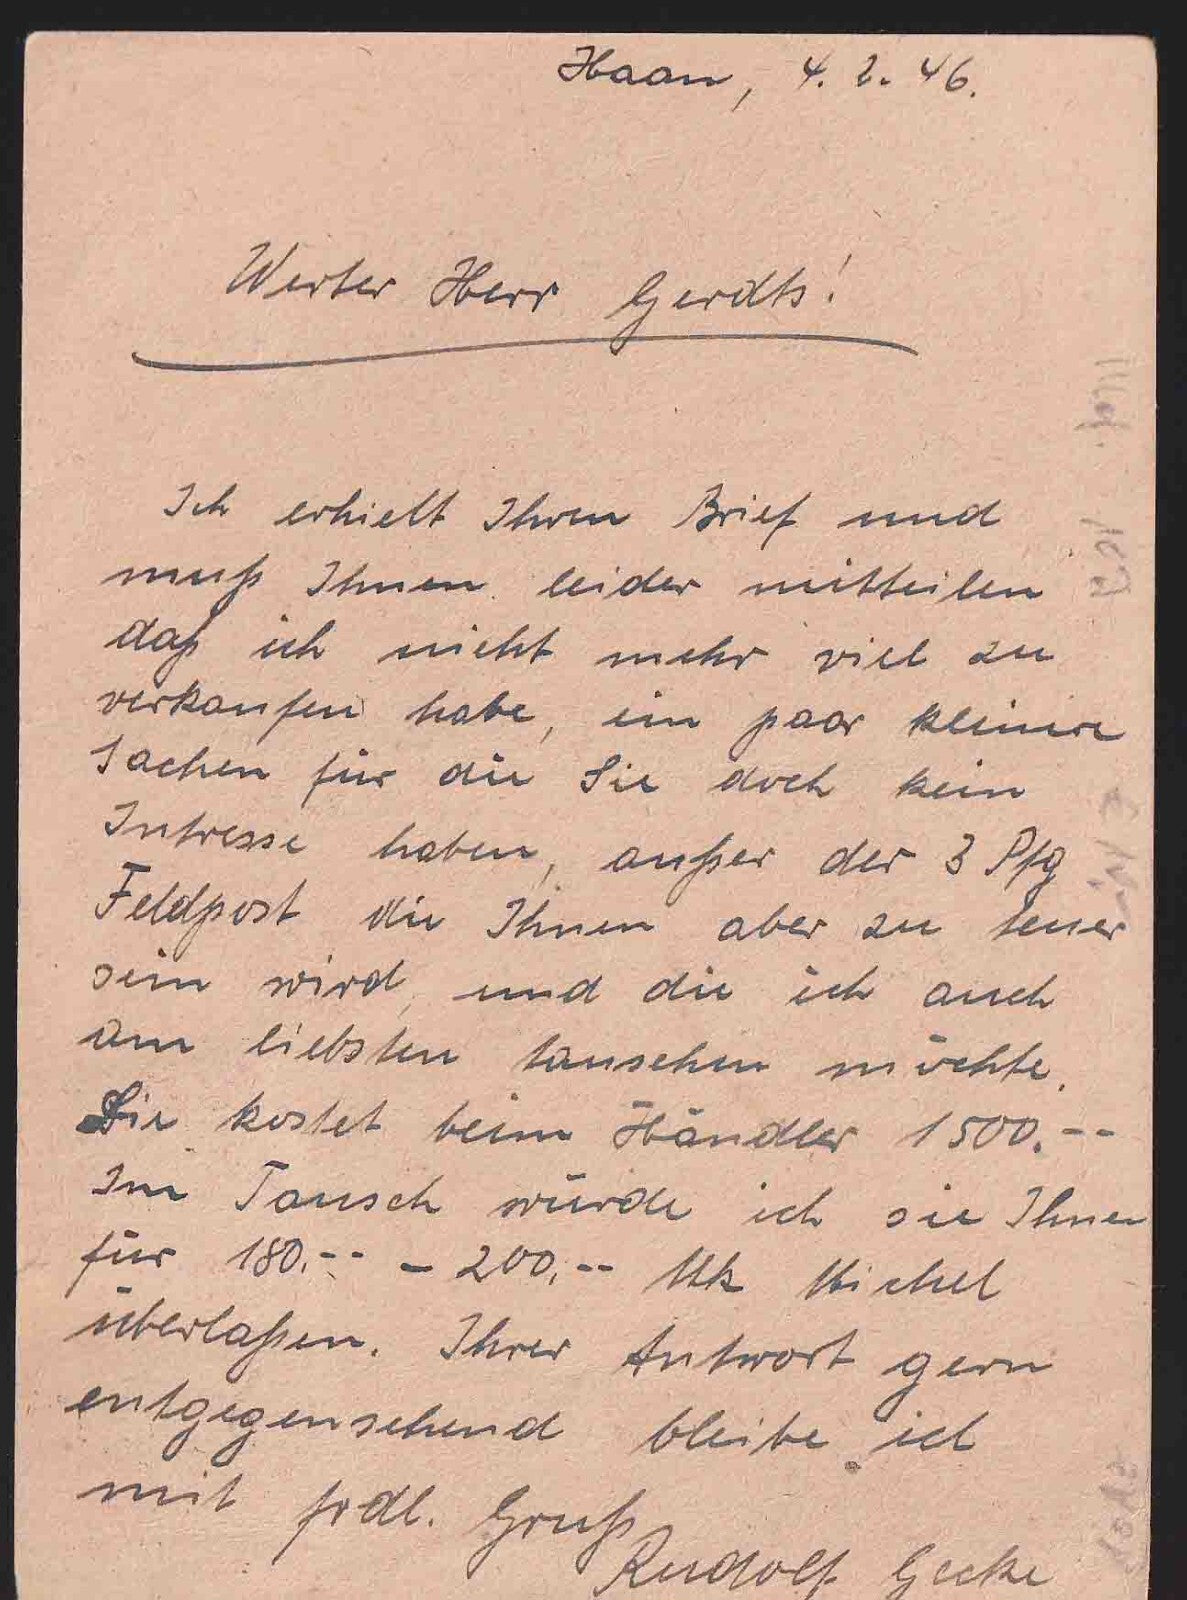 Haan, 4. 2. 46.
Werter Herr Gerdts!
Ich erhielt Ihren Brief und
muß Ihnen leider mitteilen
daß ich nicht mehr viel zu
verkaufen habe, ein paar kleinere
Sachen für die Sie doch kein
Intresse haben, außer der 3 Pfg
Feldpost die Ihnen aber zu teuer
sein wird, und die ich auch
am liebsten tauschen möchte.
Sie kostet beim Händler 1500.--
Im Tausch würde ich sie Ihnen
für 180.-- - 200.-- Mk Michel
überlaßen. Ihrer Antwort gern
entgegensehend bleibe ich
mit frdl. Gruß
Rudolf Gecke